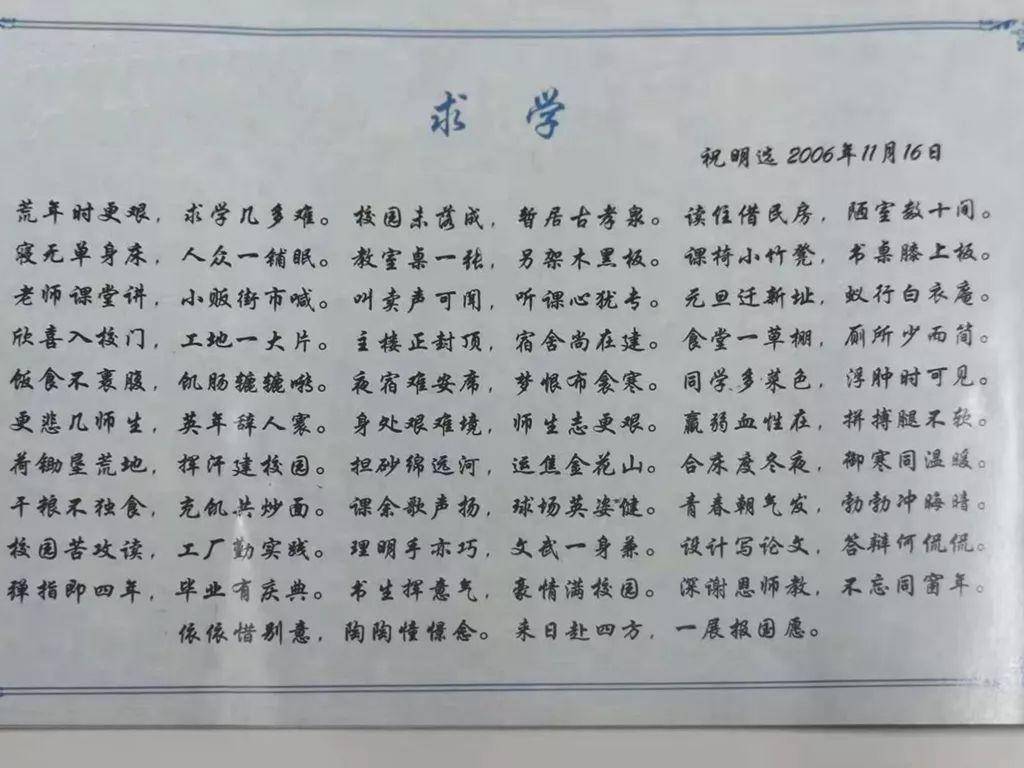 求 学
祝明选 2006年11月16日
荒年时更艰，求学几多难。校园未落成，暂居古孝泉。读住借民房，陋室数十间。
寝无单身床，人众一铺眠。教室桌一张，另架木黑板。课椅小竹凳，书桌膝上板。
老师课堂讲，小贩街市喊。叫卖声可闻，听课心犹专。元旦迁新址，蚁行白衣庵。
欣喜入校门，工地一大片。主楼正封顶，宿舍尚在建。食堂一草棚，厕所少而简。
饭食不裹腹，饥肠辘辘嘶。夜宿难安席，梦恨布衾寒。同学多菜色，浮肿时可见。
更悲几师生，英年辞人寰。身处艰难境，师生志更艰。羸弱血性在，拼搏腿不软。
荷锄垦荒地，挥汗建校园。担砂绵远河，运焦金花山。合床度冬夜，御寒同温暖。
干粮不独食，充饥共炒面。课余歌声扬，球场英姿健。青春朝气发，勃勃冲晦暗。
校园苦攻读，工厂勤实践。理明手亦巧，文武一身兼。设计写论文，答辩何侃侃。
弹指即四年，毕业有庆典。书生挥意气，豪情满校园。深谢恩师教，不忘同窗年。
依依惜别意，陶陶憧憬念。来日赴四方，一展报国愿。